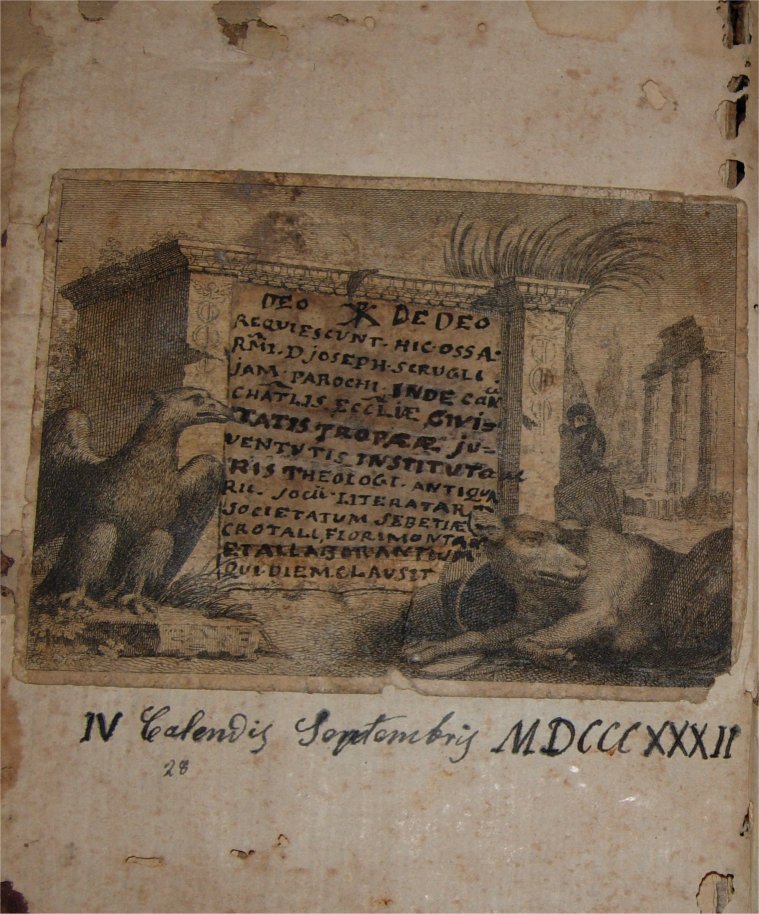 DEO ☧ DE DEO
REQUIESCUNT. HIC. OSSA.
RM̃I. D. JOSEPH. SCRUGLI.
JAM. PAROCHI. INDE CAN
CHATLIS. ECCLIÆ CIVI=
TATIS TROPÆÆ JU=
VENTUTIS INSTITUT
RIS THEOLOGI. ANTIQUA
RII. SOCII. LITERATAR
SOCIETATUM SEBETIÆ
CROTALI, FLORIMONTAN
ET ALLABORANTIUM
QUI. DIEM. CLAUSIT
IV Calendis Septembris MDCCCXXXII
28